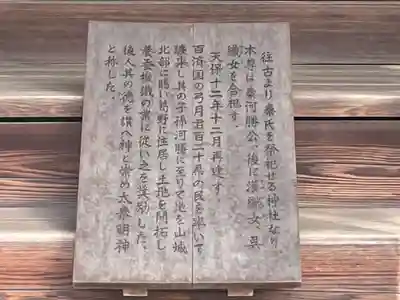 往古より秦氏を祭祀せる神社なり。
本尊は秦河勝公、後に漢織女、呉
織女を合祀す。
天保十二年十二月再建す。
百済国の弓月君百二十県の民を率いて
帰来し其の子孫河勝に至りて地を山城
北部に賜い葛野に住居し土地を開拓し
養蚕機織の業に従い之を奨励した。
後人其の徳を讃へ神と崇め太秦明神
と称した。